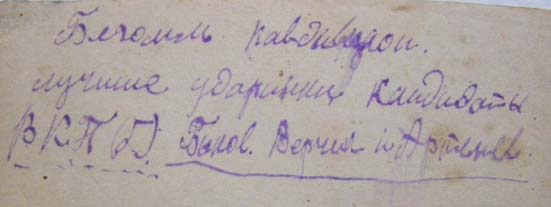 Бегомль кавдивизион.
лучшие ударники кандидаты
ВКП(б) Быков. Верчея и Артемьев.